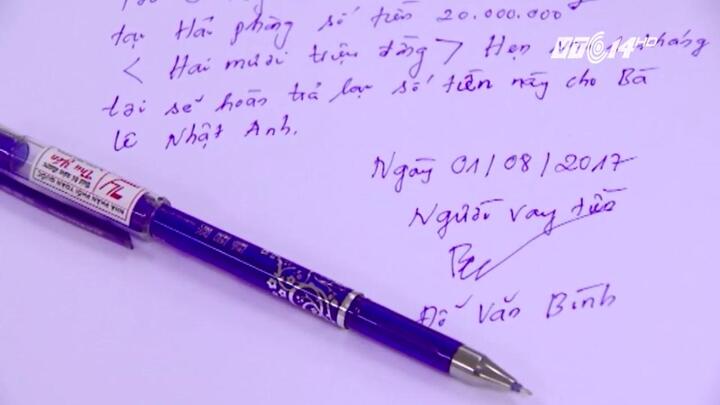 VTC14 HD
tại Hải phòng số tiền 20.000.000đ
< Hai mươi triệu đồng > Hẹn tháng
tới sẽ hoàn trả lại số tiền này cho Bà
Lê Nhật Anh.
Ngày 01/08/2017
Người vay tiền
Đỗ Văn Bình
NHÀ PHÂN PHỐI TOÀN QUỐC
Thu Yến